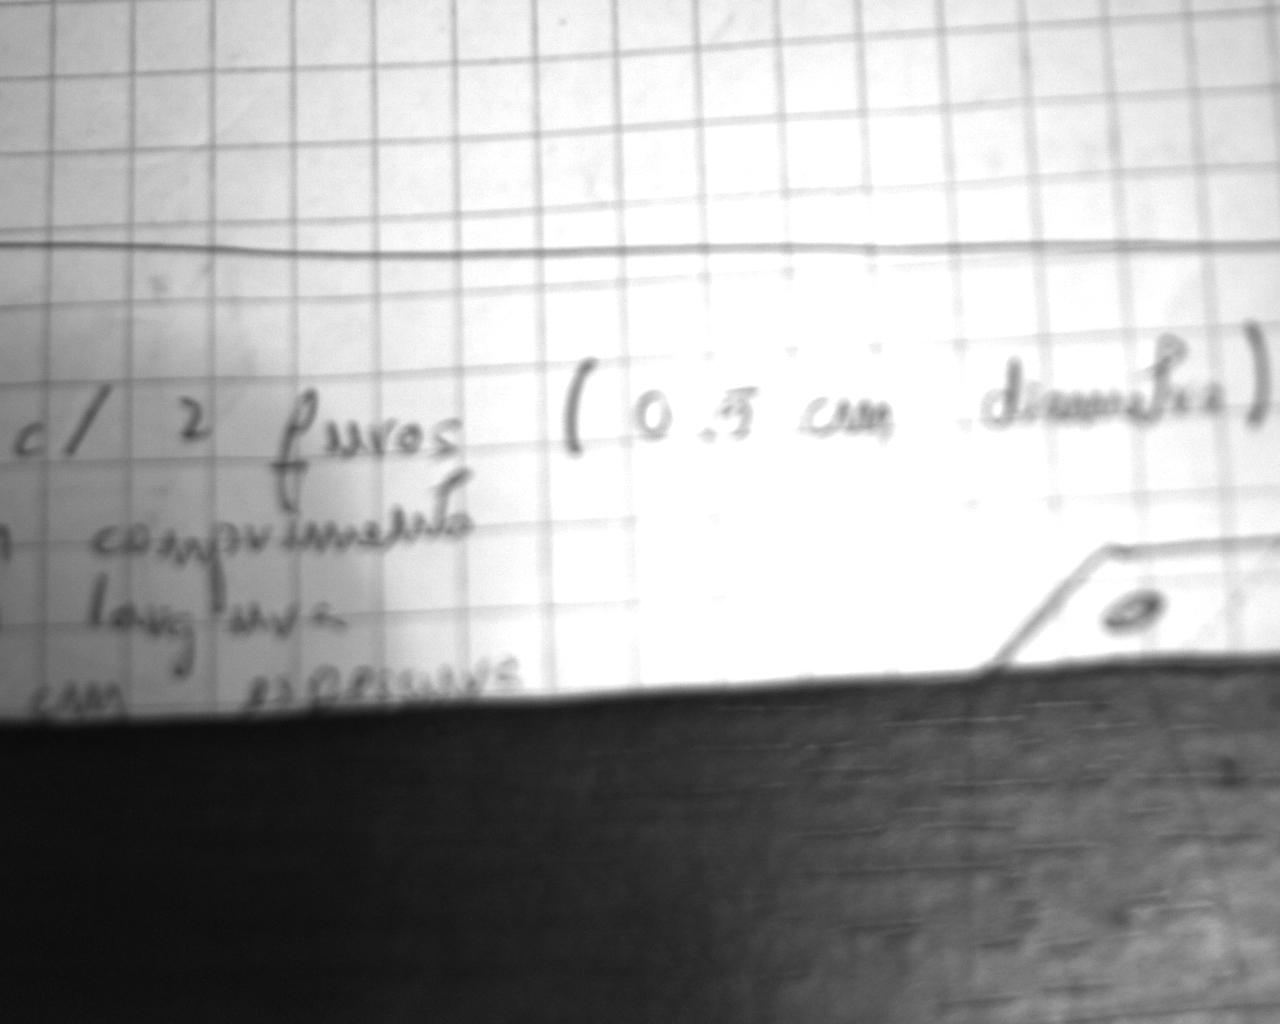 c/ 2 furos (0.5 cm diametro)
comprimento
largura
cm espessura